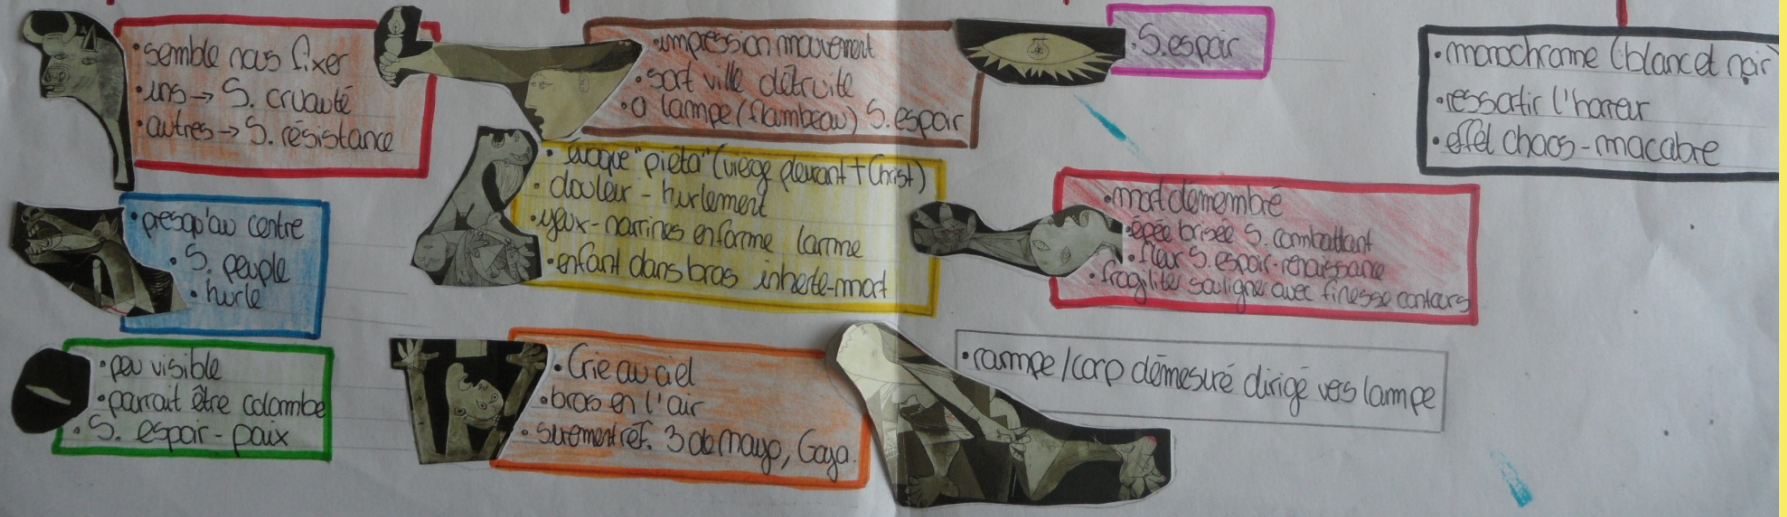 • semble nous fixer
• uns → S. cruauté
• autres → S. résistance
• impression mouvement
• sort ville détruite
• a lampe (flambeau) S. espoir
• S. espoir
• monochrome (blanc et noir)
• ressortir l'horreur
• effet chaos - macabre
• presqu'au centre
• S. peuple
• hurle
• évoque "piéta" (vierge pleurant + Christ)
• douleur - hurlement
• yeux - narines en forme larme
• enfant dans bras inherte - mort
• mort démembré
• épée brisée S. combattant
• fleur S. espoir - renaissance
• fragilité souligner avec finesse contours
• peu visible
• parrait être colombe
• S. espoir - paix
• Crie au ciel
• bras en l'air
• surement réf. 3 de Mayo, Goya
• rampe / corp démesuré dirigé vers lampe